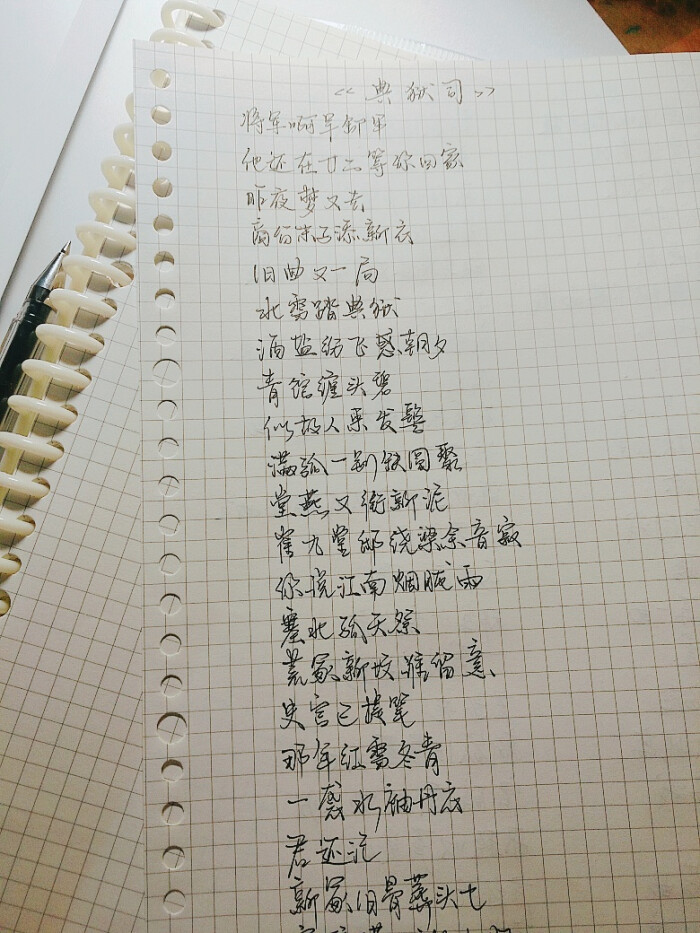 <<典狱司>>
将军啊早卸甲
他还在廿二等你回家
昨夜梦又去
商台木马添新衣
旧曲又一局
水雲踏典狱
酒盐纷飞惹朝夕
青馆缠头碧
似故人来发髻
满弧一别缺圆聚
堂燕又衔新泥
崔九堂邸绕梁余音寂
你说江南烟胧雨
塞北孤天祭
荒冢新坟谁留意
史官已提笔
那年红雪冬青
一袭水袖丹衣
君还记
新冢旧骨葬头七